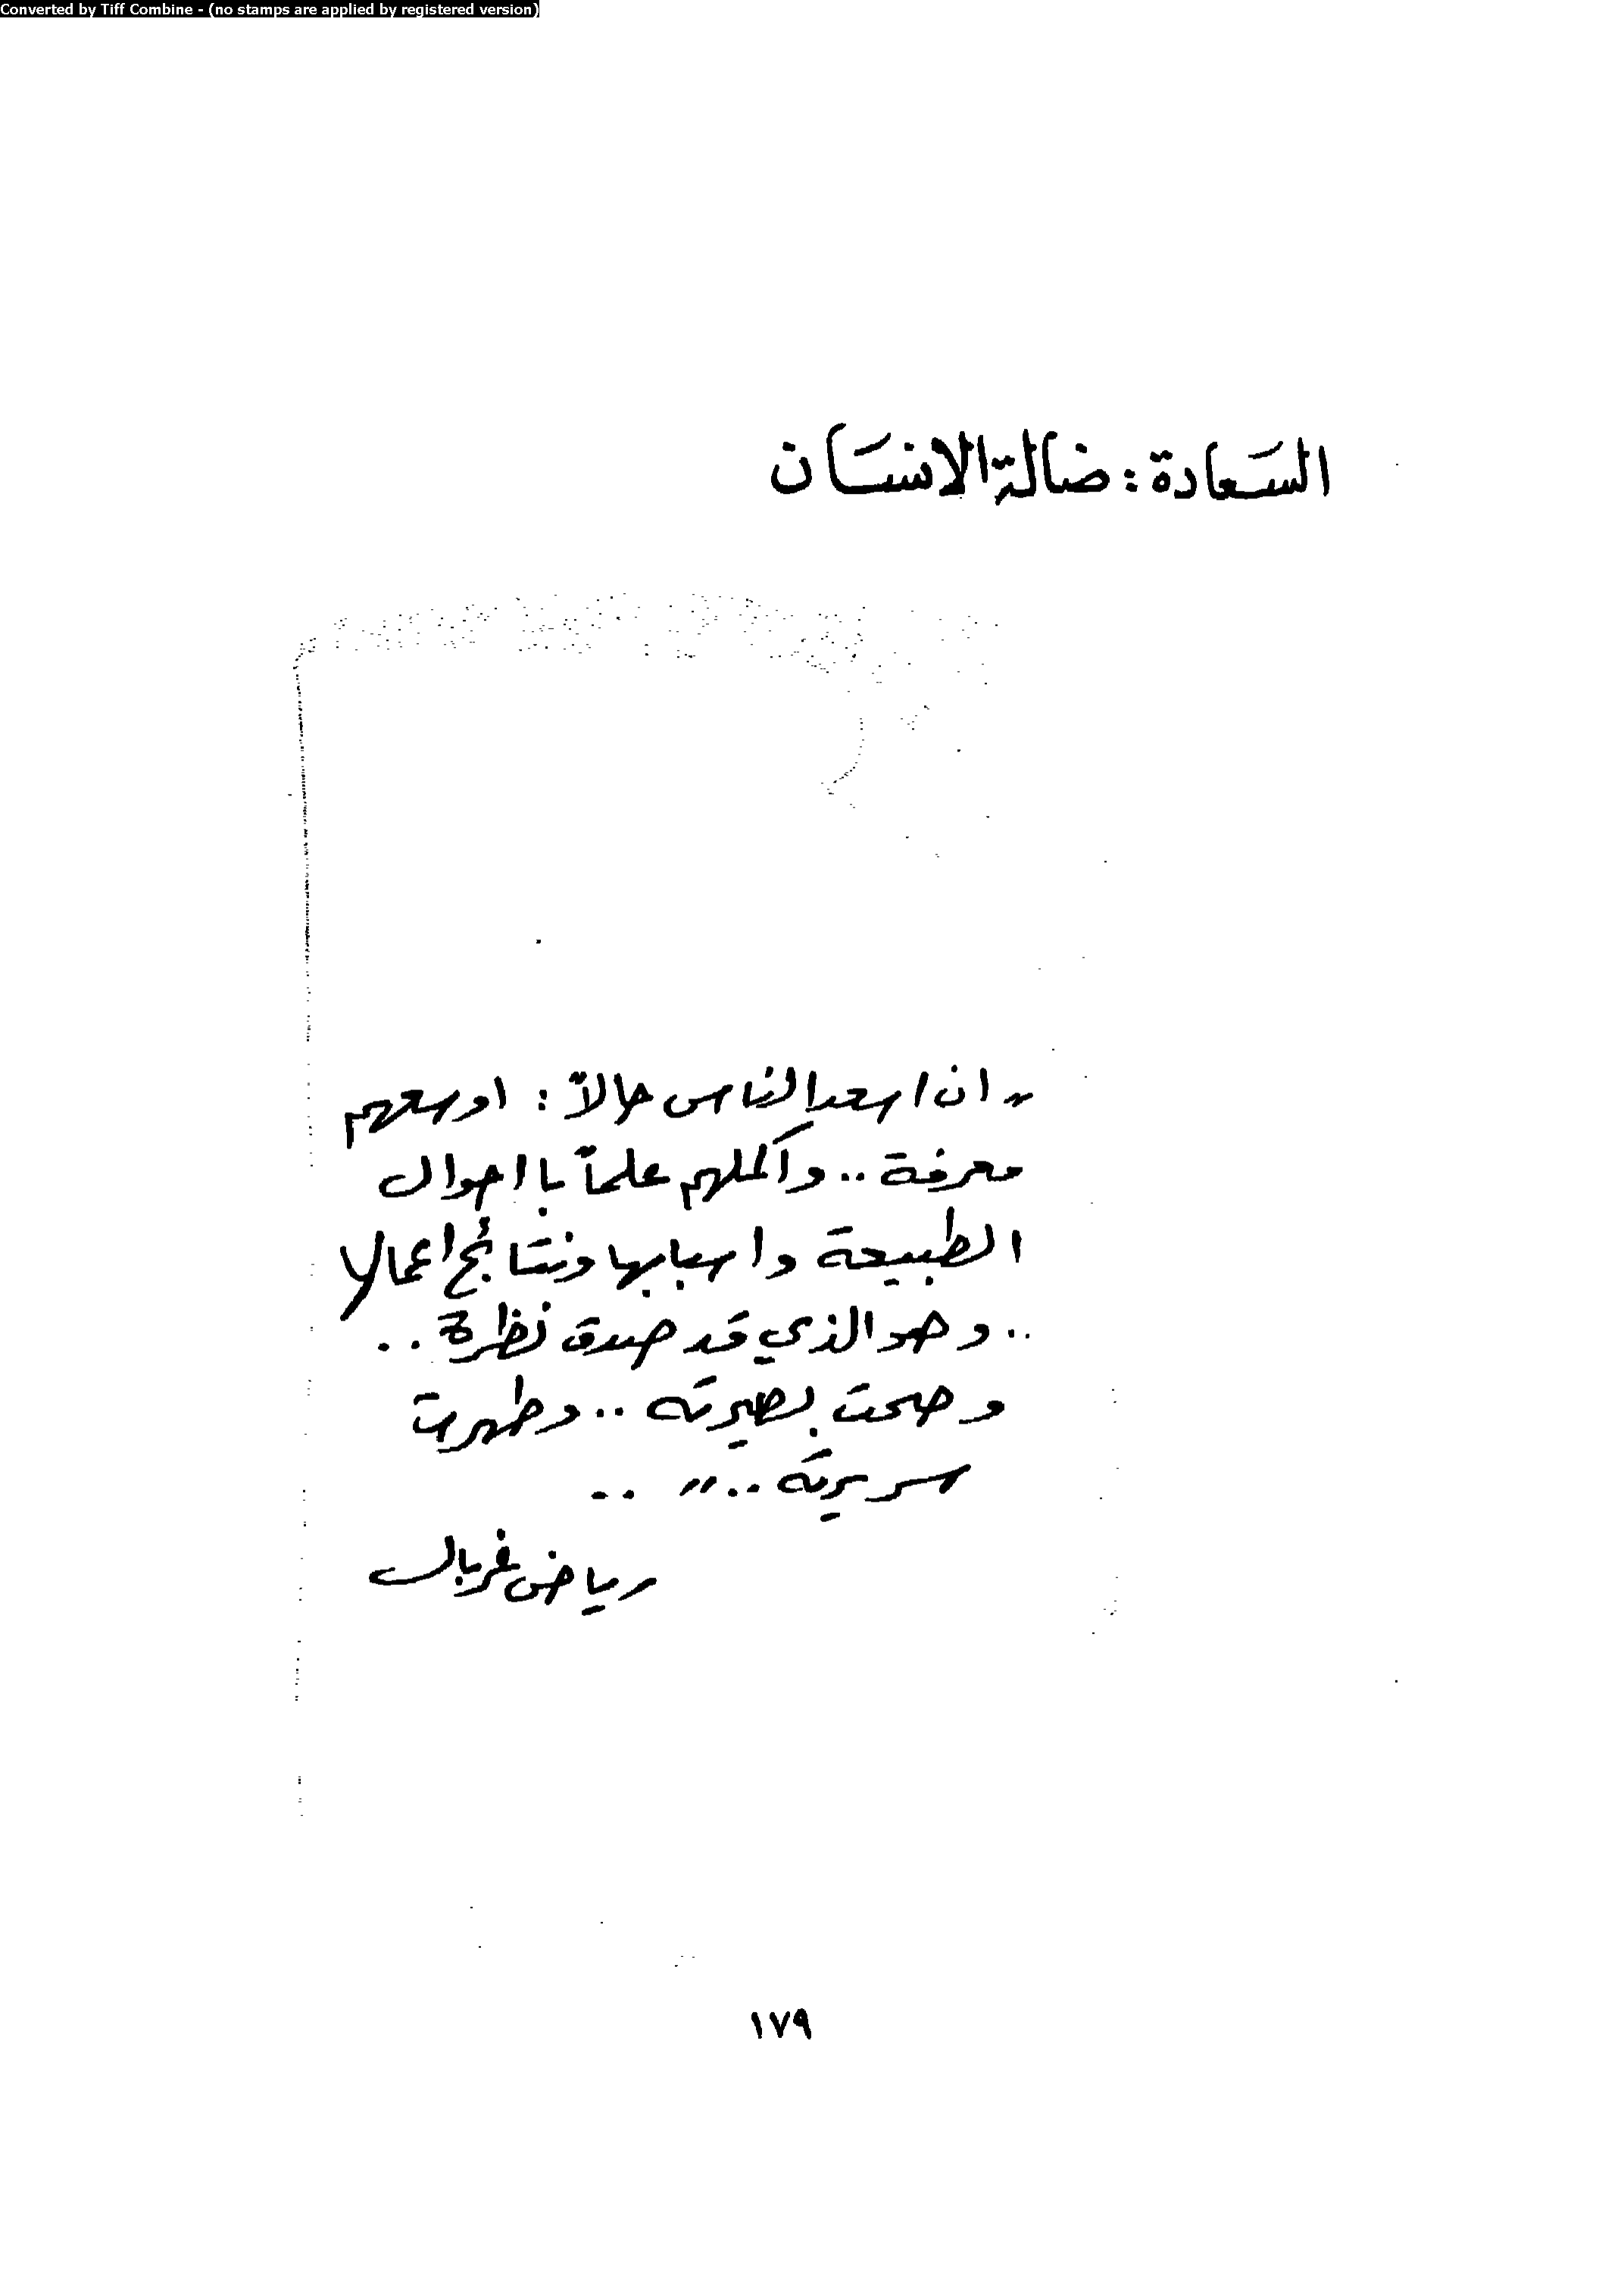 Converted by Tiff Combine - (no stamps are applied by registered version)
السَعادة : ضالة الانسَان
" ان اسعد الناس حالاً : اوسعهم
معرفة .. وأكملهم علماً باحوال
الطبيعة واسبابها ونتائج اعمالها
.. وهو الذي قد صدق نظرة ..
وصحت بصيرته .. وطهرت
سريرته .. " ..
رياض غربال
١٧٩